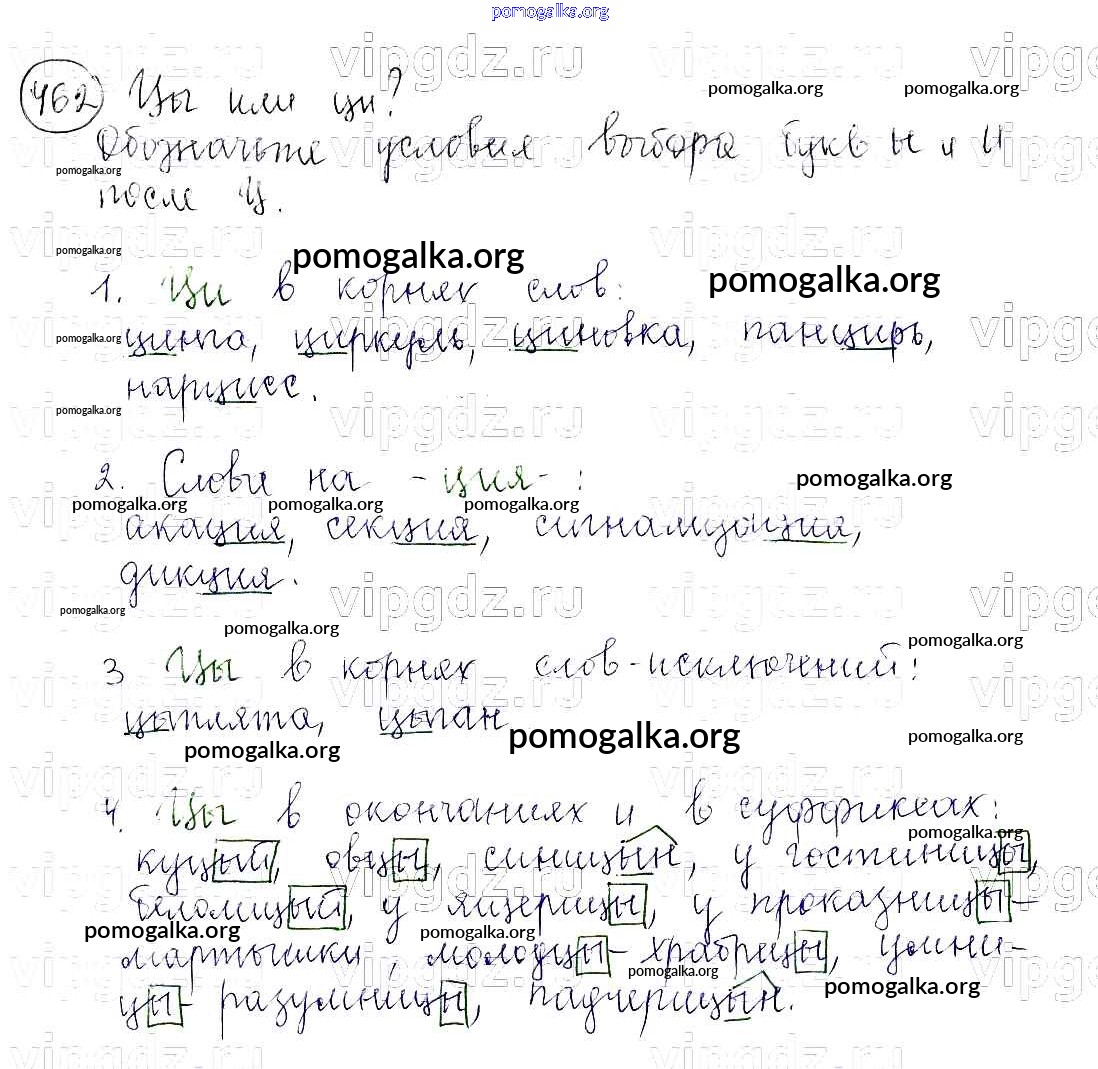 pomogalka.org
462 Цы или ци?
Обозначьте условия выбора букв ы и и
после ц.
1. Ци в корнях слов:
цинга, циркуль, циновка, панцирь,
нарцисс.
2. Слова на -ция-:
акация, секция, сигнализация,
дикция.
3 Цы в корнях слов-исключений:
цыплята, цыган
4. Цы в окончаниях и в суффиксах:
куцый, овцы, синицын, у гостиницы,
белолицый, у ящерицы, у проказницы-
мартышки, молодцы-храбрецы, умни-
цы-разумницы, падчерицын.